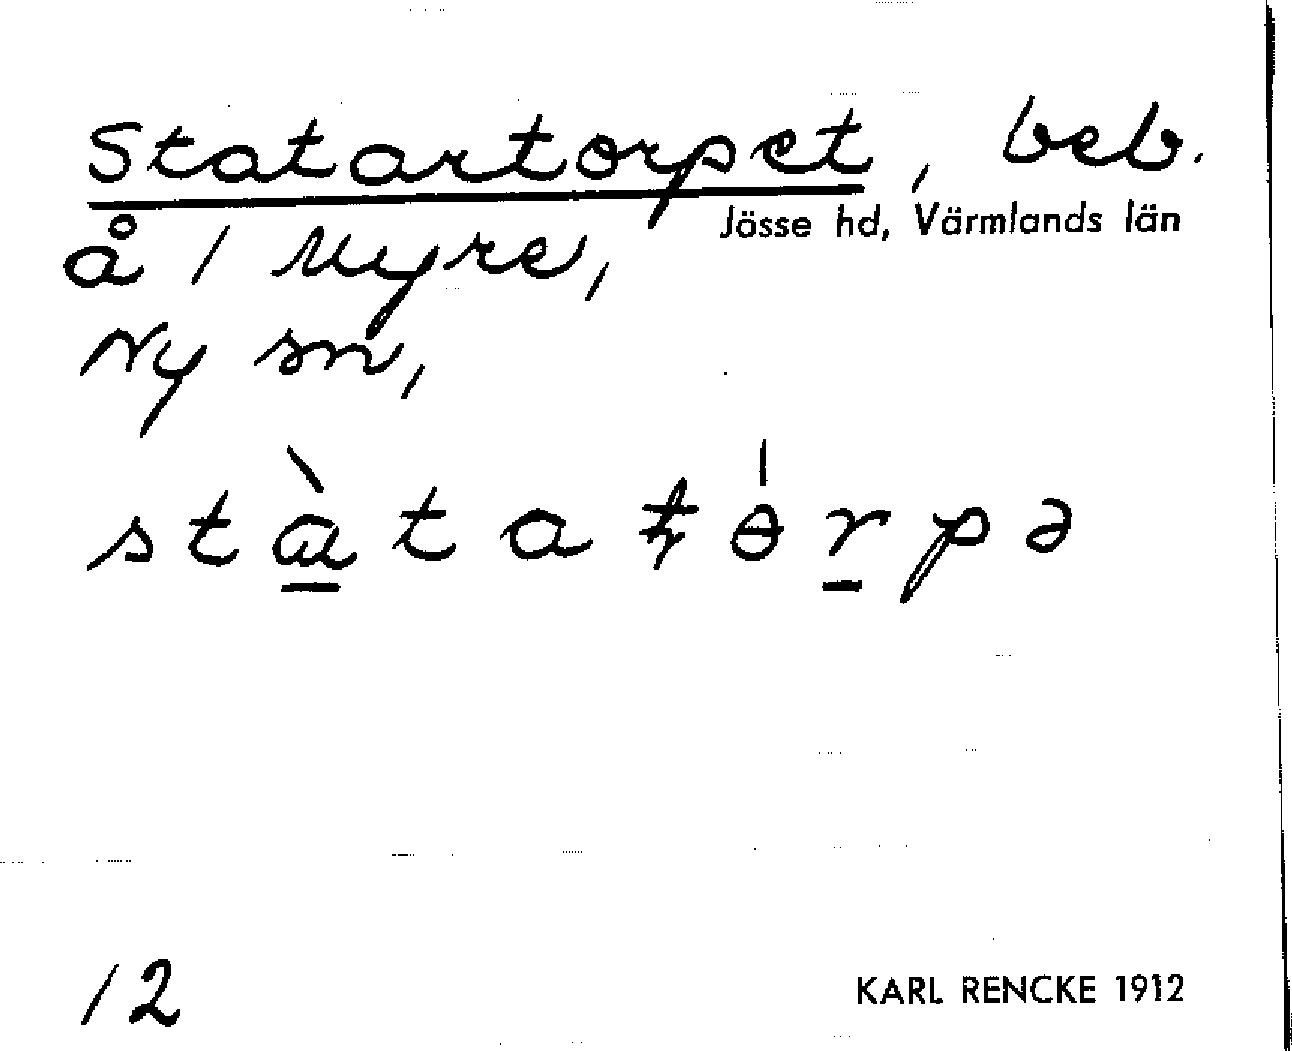 Statartorpet, beb.
Jösse hd, Värmlands län
å 1 Myre,
Ny sn,
stàtaʈɵ́rpə
12
KARL RENCKE 1912